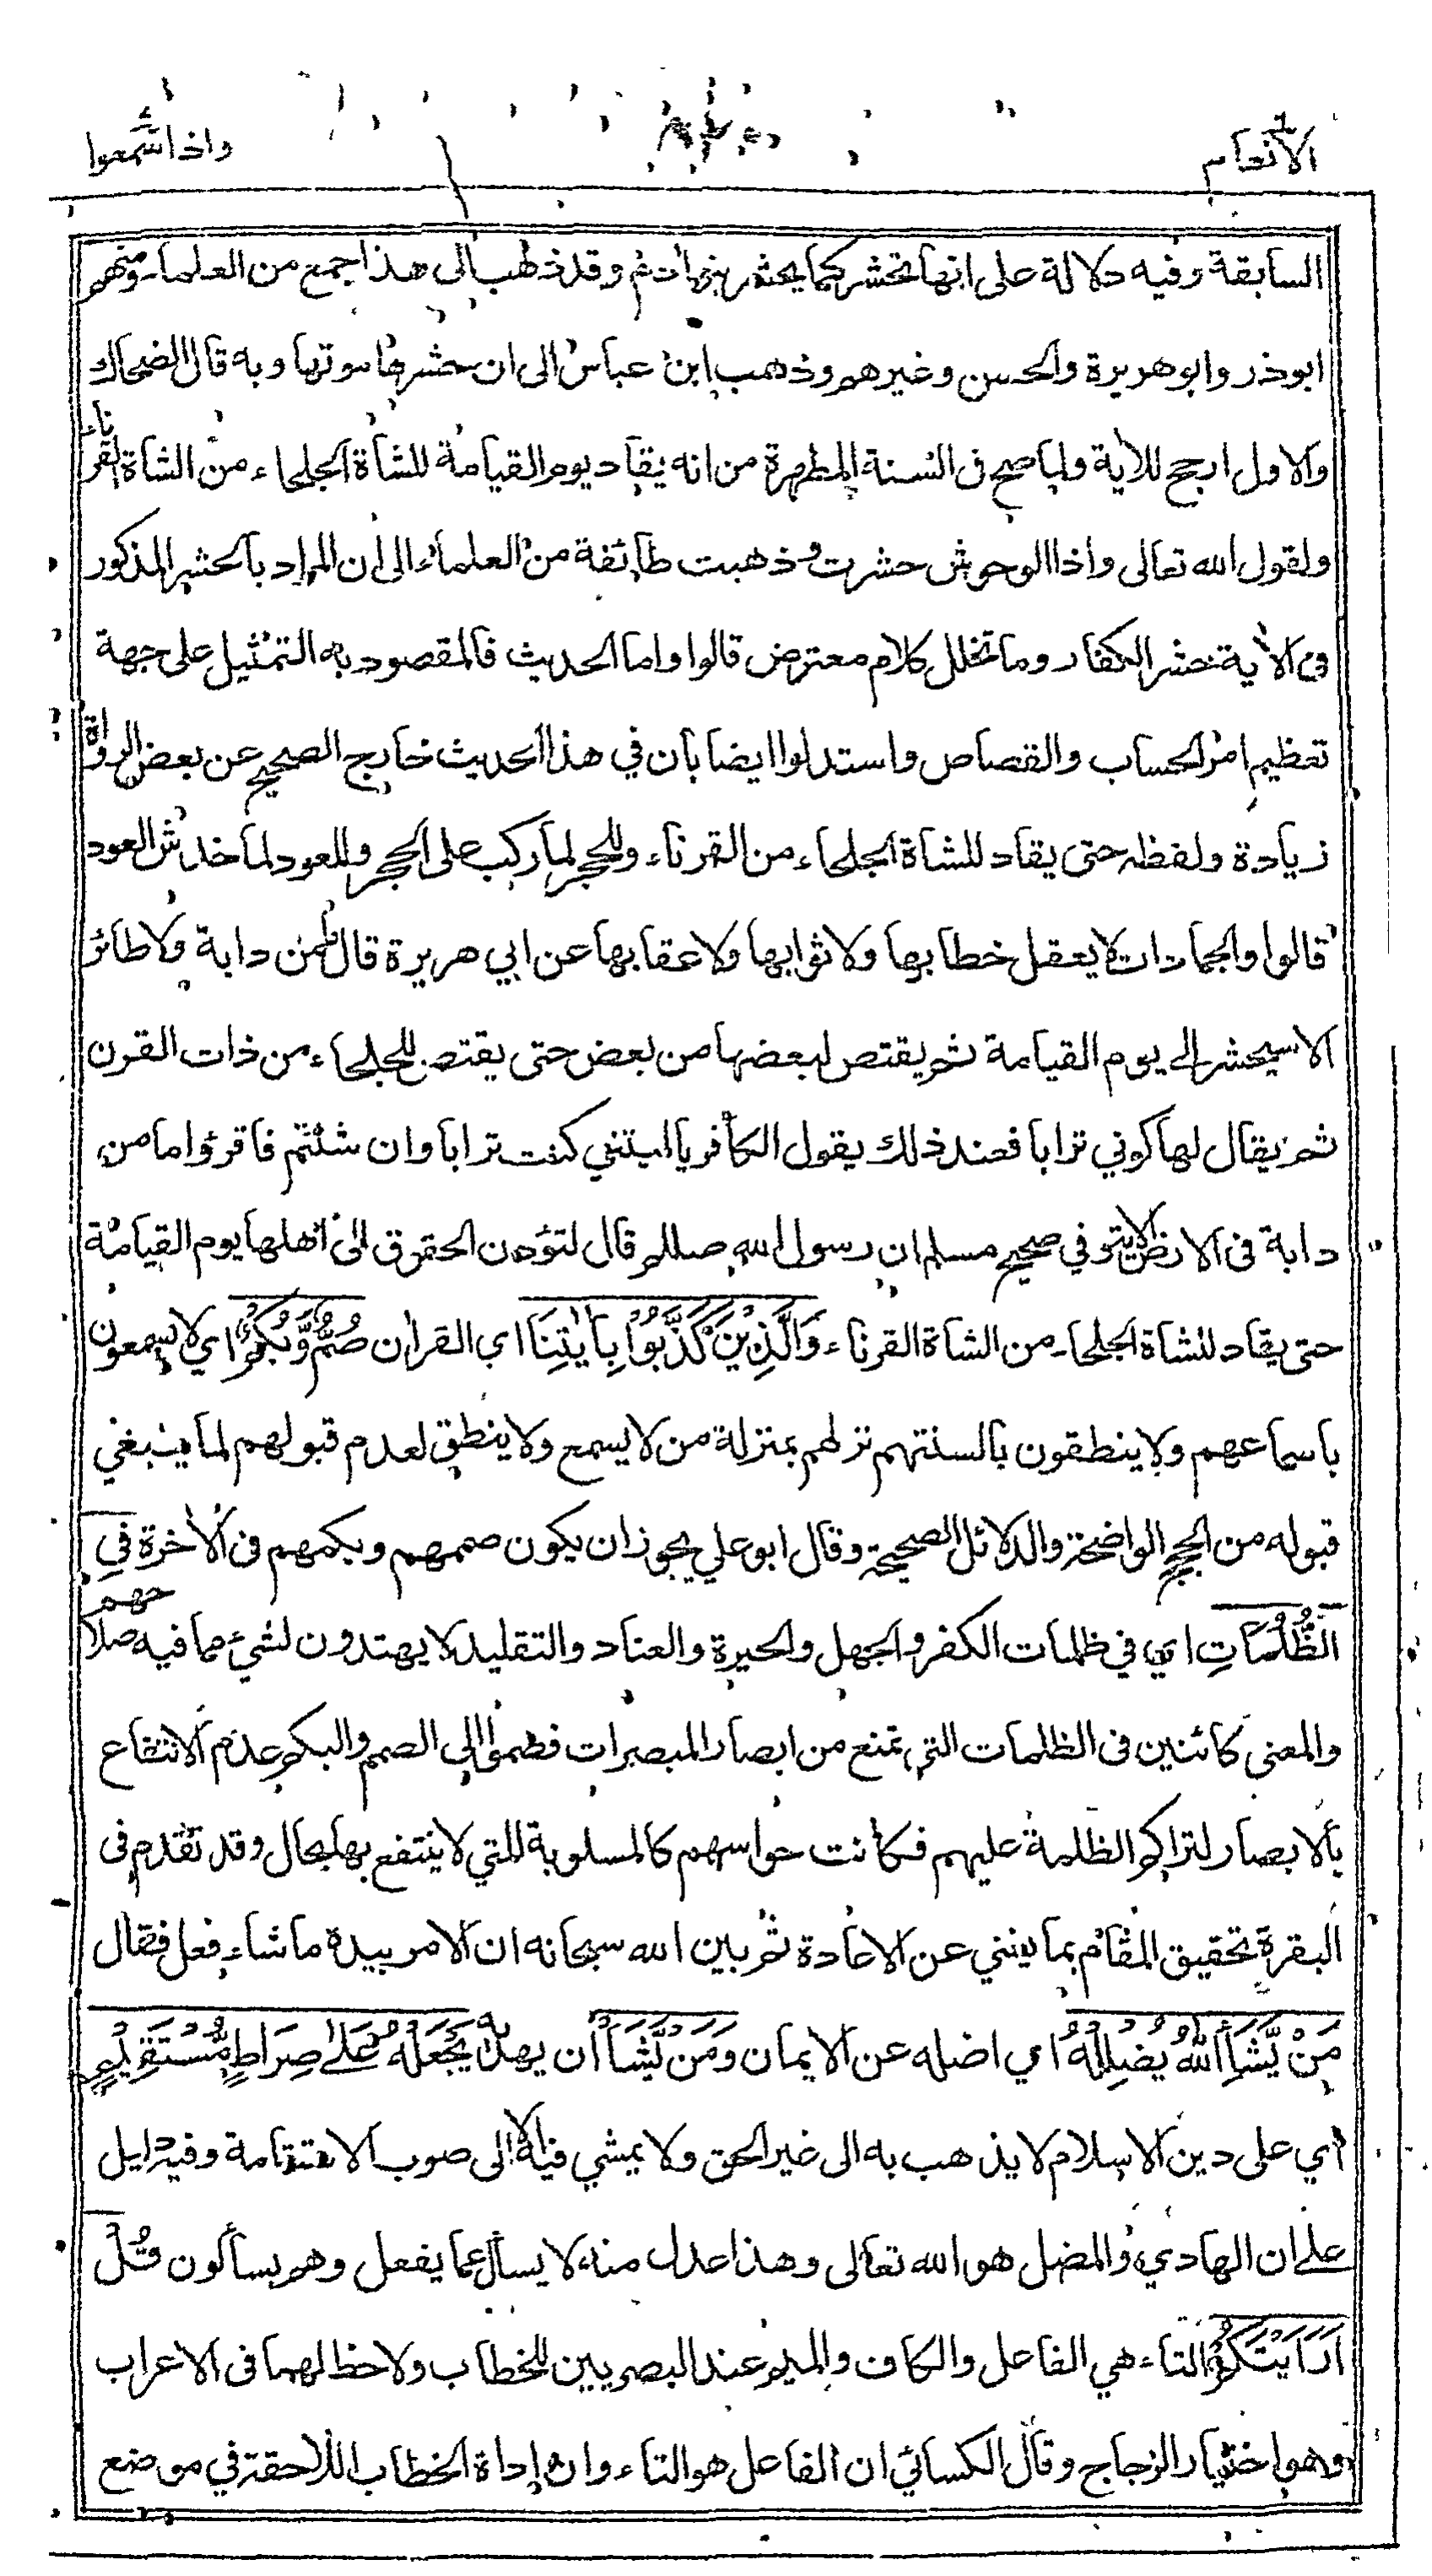 الانعام
واذا سمعوا
السابقة وفيه دلالة على انها تحشر كما يحشر بنو ادم وقد ذهب الى هذا جمع من العلماء ومنهم
ابوذر وابو هريرة والحسن وغيرهم وذهب ابن عباس الى ان حشرها موتها وبه قال الضحاك
والاول ارجح للاية ولما صح فى السنة المطهرة من انه يقاد يوم القيامة للشاة الجلحاء من الشاة القرناء
ولقول الله تعالى واذا الوحوش حشرت وذهبت طائفة من العلماء الى ان المراد بالحشر المذكور
فى الاية حشر الكفار وما تخلل كلام معترض قالوا واما الحديث فالمقصود به التمثيل على جهة
تعظيم امر الحساب والقصاص واستدلوا ايضا بان في هذا الحديث خارج الصحيح عن بعض الرواة
زيادة ولفظه حتى يقاد للشاة الجلحاء من القرناء وللحجر لما ركب على الحجر وللعود لما خدش العود
قالوا والجمادات لا يعقل خطابها ولا ثوابها ولا عقابها عن ابي هريرة قال ما من دابة ولا طائر
الا سيحشر الى يوم القيامة ثم يقتص لبعضها من بعض حتى يقتص للجلحاء من ذات القرن
ثم يقال لها كوني ترابا فعند ذلك يقول الكافر يا ليتني كنت ترابا وان شئتم فاقرؤا ما من
دابة فى الارض الاية وفي صحيح مسلم ان رسول الله صللم قال لتؤدن الحقوق الى اهلها يوم القيامة
حتى يقاد للشاة الجلحاء من الشاة القرناء وَالَّذِيْنَ كَذَّبُوْا بِاٰيٰتِنَا اي القران صُمٌّ وَّبُكْمٌ اي لا يسمعون
باسماعهم ولا ينطقون بالسنتهم نزلهم بمنزلة من لا يسمع ولا ينطق لعدم قبولهم لما ينبغي
قبوله من الحجج الواضحة والدلائل الصحيحة وقال ابو علي يجوز ان يكون صممهم وبكمهم فى الاخرة فِي
الظُّلُمَاتِ اي في ظلمات الكفر والجهل والحيرة والعناد والتقليد لا يهتدون لشيء مما فيه صلاحهم
والمعنى كائنين فى الظلمات التي تمنع من ابصار المبصرات فضموا الى الصمم والبكم عدم الانتفاع
بالابصار لتراكم الظلمة عليهم فكانت حواسهم كالمسلوبة التي لا ينتفع بها بحال وقد تقدم فى
البقرة تحقيق المقام بما يغني عن الاعادة ثم بين الله سبحانه ان الامر بيده ما شاء فعل فقال
مَنْ يَّشَأِ اللّٰهُ يُضْلِلْهُ اي اضله عن الايمان وَمَنْ يَّشَأْ ان يهديه يَجْعَلْهُ عَلٰى صِرَاطٍ مُّسْتَقِيْمٍ
اي على دين الاسلام لا يذهب به الى غير الحق ولا يمشي فيه الا الى صوب الاستقامة وفيه دليل
على ان الهادي والمضل هو الله تعالى وهذا عدل منه لا يسأل عما يفعل وهم يسألون قُلْ
اَرَاَيْتَكُمْ التاء هي الفاعل والكاف والميم عند البصريين للخطاب ولا حظ لهما فى الاعراب
وهو اختيار الزجاج وقال الكسائي ان الفاعل هو التاء وان اداة الخطاب اللاحقة في موضع